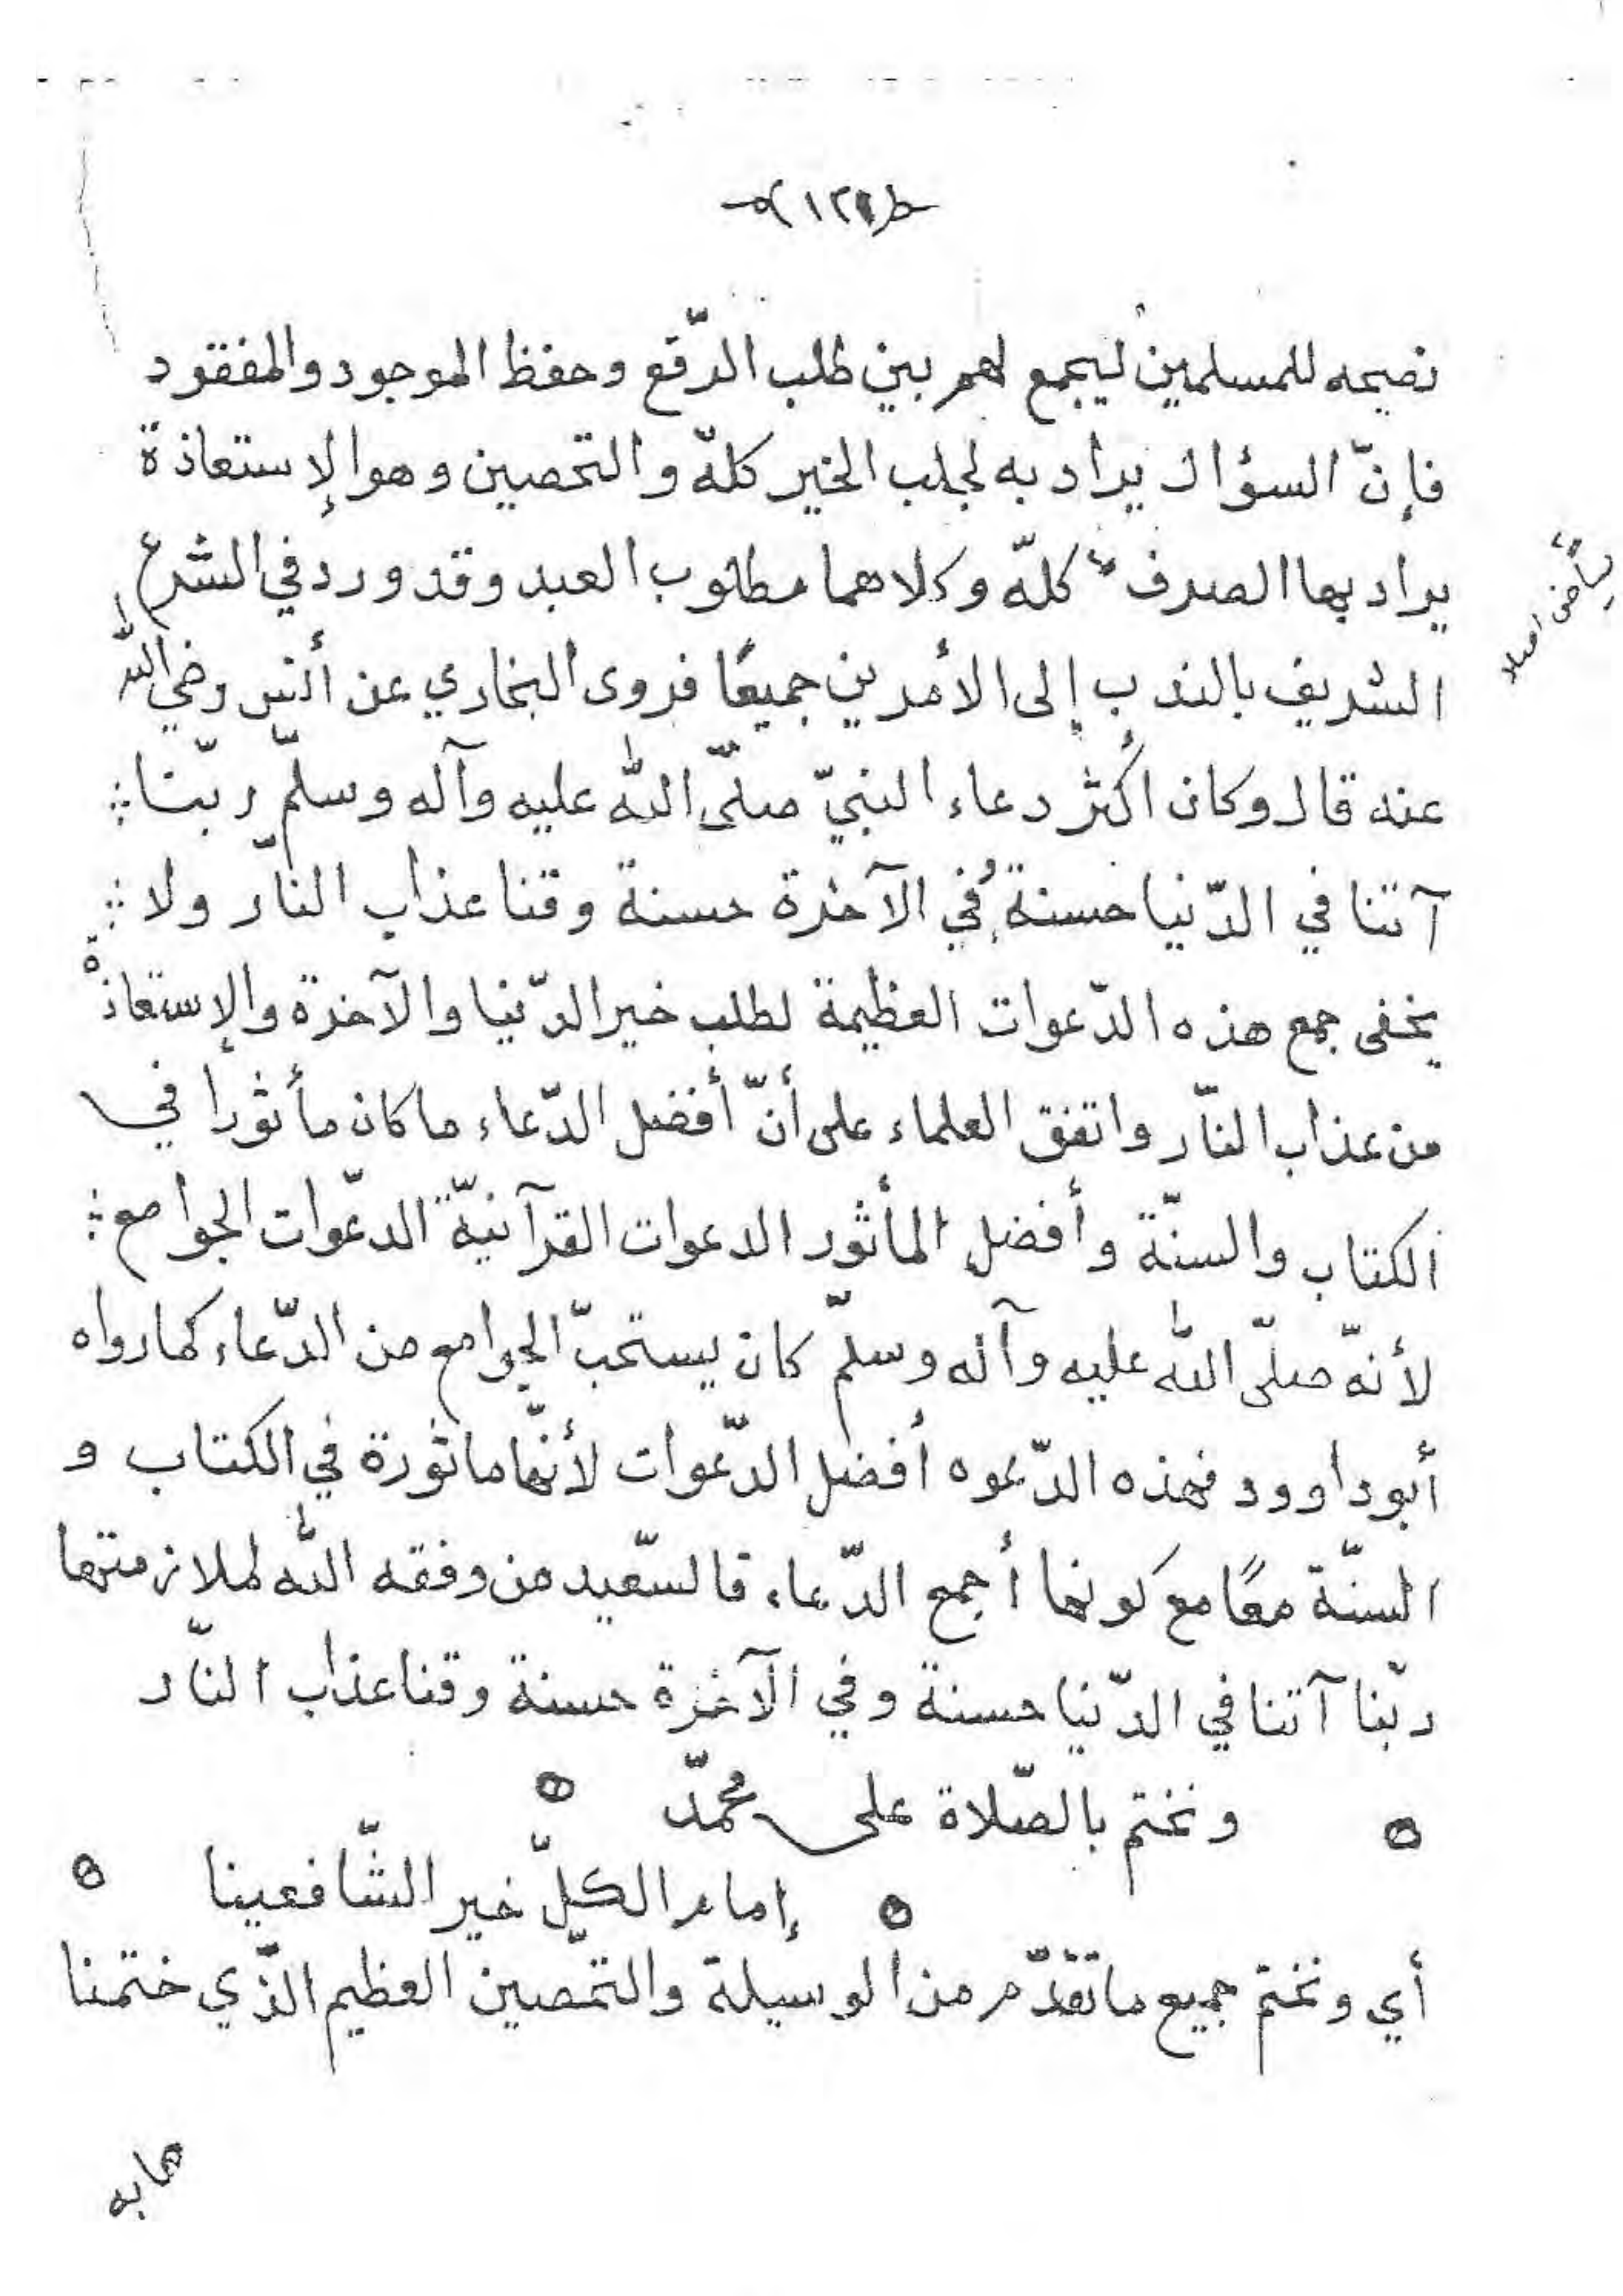 نصيحه للمسلمين ليجمع لهم بين طلب الدّفع وحفظ الموجود والمفقود
فإنّ السؤال يراد به لجلب الخير كلّه والتحصين وهو الإستعاذة
يراد بها الصرف كلّه وكلاهما مطلوب العبد وقد ورد في الشرع
الشريف بالندب إلى الأمرين جميعًا فروى البخاري عن أنس رضي الله
عنه قال وكان أكثر دعاء النبيّ صلّى الله عليه وآله وسلّم ربّنا
آتنا في الدّنيا حسنة وفي الآخرة حسنة وقنا عذاب النّار ولا
يخفى جمع هذه الدّعوات العظيمة لطلب خير الدّنيا والآخرة والإستعاذة
من عذاب النّار واتفق العلماء على أنّ أفضل الدّعاء ما كان مأثورا في
الكتاب والسنّة وأفضل المأثور الدعوات القرآنيّة الدعّوات الجوامع
لأنّه صلّى الله عليه وآله وسلّم كان يستحبّ الجوامع من الدّعاء كما رواه
أبو داوود فهذه الدّعوه أفضل الدّعوات لأنّها ماثورة في الكتاب و
السنّة معًا مع كونها أجمع الدّعاء فالسّعيد من وفقه الله لملازمتها
ربّنا آتنا في الدّنيا حسنة وفي الآخرة حسنة وقنا عذاب النّار
ونختم بالصّلاة على محمّد
إمام الكلّ خير الشّافعينا
أي ونختم جميع ما تقدّم من الوسيلة والتحّصين العظيم الذّي ختمنا